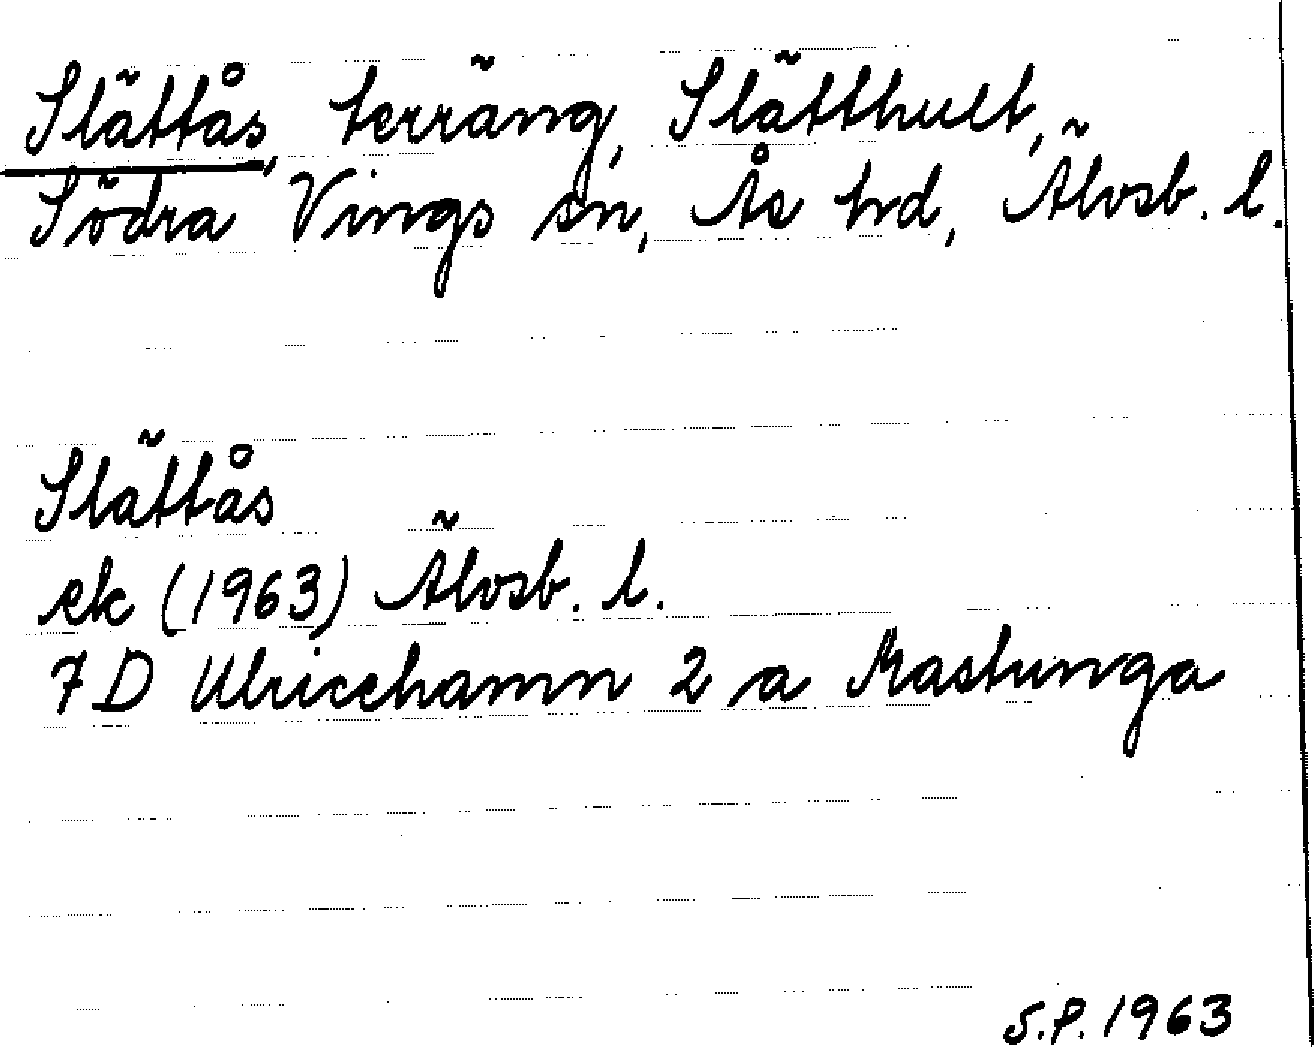 Slättås, terräng, Slätthult,
Södra Vings sn, Ås hd, Älvsb. l.
Slättås
ek (1963) Älvsb. l.
7 D Ulricehamn 2 a Rastunga
S.P. 1963